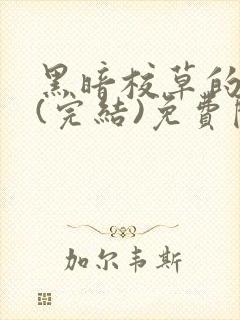 黑暗校草的
(完結)免費
加尔韦斯